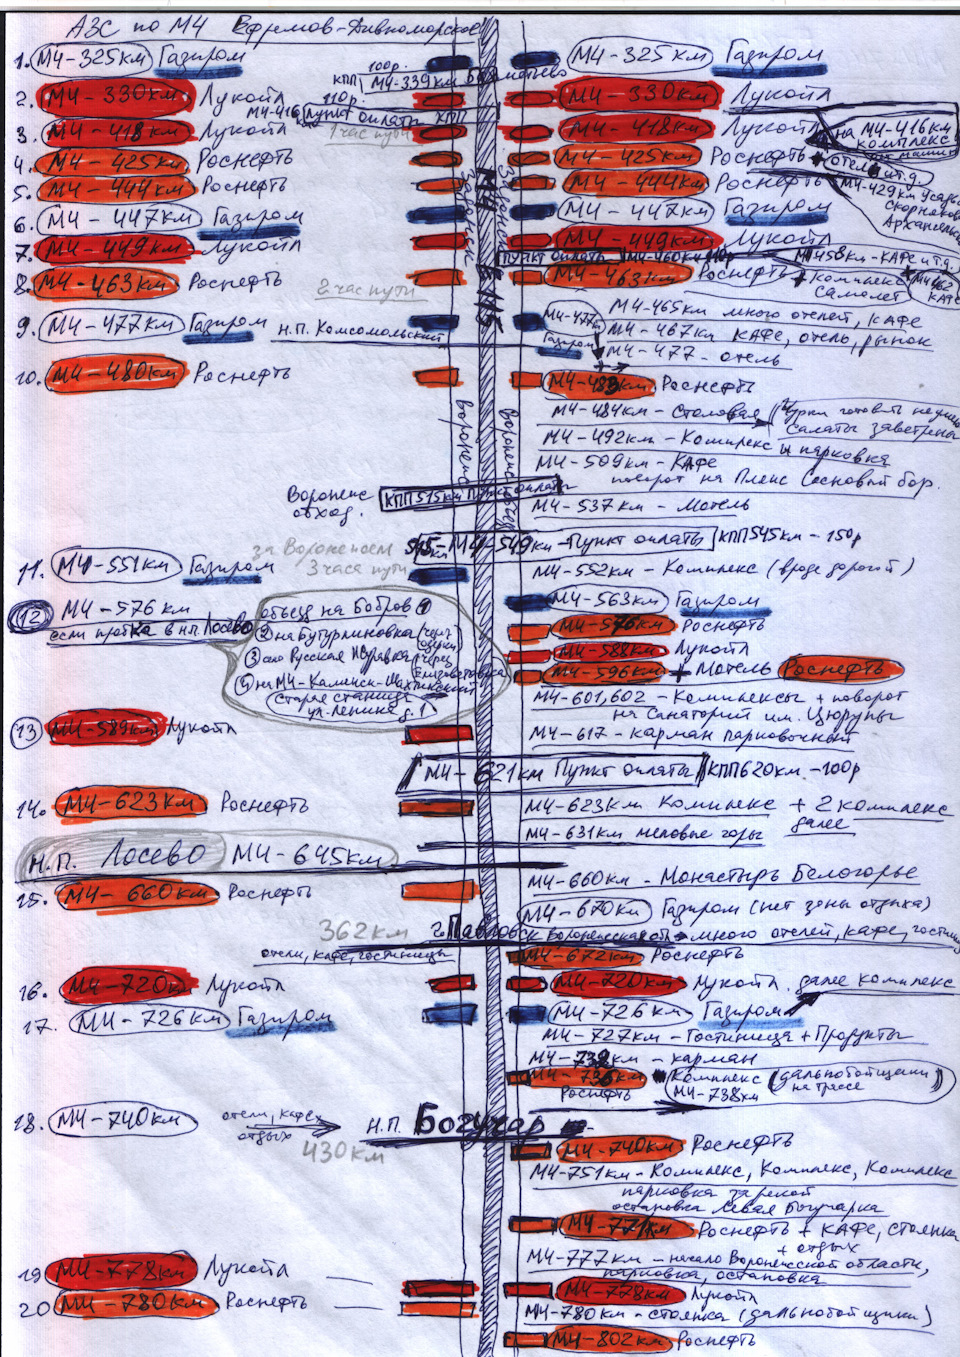 АЗС по М4 Ефремов-Дивноморское
1. М4-325км Газпром
100р.
КПП М4-339км
М4-325км Газпром
2. М4-330км Лукойл
110р.
М4-416 Пункт оплаты КПП
М4-330км Лукойл
3. М4-418км Лукойл
1 час пути
М4-418км Лукойл
на М4-416км
комплекс
4. М4-425км Роснефть
М4-425км Роснефть + отель и т.д.
5. М4-444км Роснефть
М4-444км Роснефть
М4-429км
6. М4-447км Газпром
М4-447км Газпром
7. М4-449км Лукойл
М4-449км Лукойл
Пункт оплаты М4-460км 110р
М4-458км-КАФЕ и т.д.
8. М4-463км Роснефть
2 час пути
М4-463км Роснефть + комплекс
Самолет
М4-462
КАФЕ
9. М4-477км Газпром Н.П. Комсомольский
М4-477км
Газпром
М4-465км много отелей, КАФЕ
М4-467км КАФЕ, отель, рынок
М4-477 - отель
10. М4-480км Роснефть
М4-483км Роснефть
М4-484км - Столовая
М4-492км - Комплекс и парковка
М4-509км - КАФЕ
поворот на Плекс Сосновый бор.
Воронеж
обход.
КПП 515км Пункт оплаты
М4-537км - Мотель
за Воронежем
3 часа пути
М4-549км - Пункт оплаты КПП 545км - 150р
11. М4-551км Газпром
М4-552км - Комплекс (вроде дорогой)
12 М4-576км
если пробка в н.п. Лосево
объезд на Бобров 1
2 на Бутурлиновка
3 Русская Журавка
на М4-Каменск-Шахтинский
Старая станица
ул. Ленина д. 1
М4-563км Газпром
М4-576км Роснефть
М4-588км Лукойл
М4-596км + Мотель Роснефть
М4-601,602 - Комплексы + поворот
на Санаторий им. Цюрупы
13 М4-589км Лукойл
М4-617 - карман парковочный
М4-621км Пункт оплаты КПП 620км - 100р
14. М4-623км Роснефть
М4-623км Комплекс + 2 комплекс
далее
М4-631км меловые горы
Н.П. Лосево М4-645км
15. М4-660км Роснефть
М4-660км - Монастырь Белогорье
М4-670км Газпром (нет зоны отдыха)
362км
г. Павловск Воронежская обл. много отелей, кафе, гостиниц
отели, кафе, гостиницы
М4-672км Роснефть
16. М4-720км Лукойл
М4-720км Лукойл. далее комплекс
17. М4-726км Газпром
М4-726км Газпром
М4-727км - Гостиница + Продукты
М4-739км - карман
М4-736км
Роснефть
Комплекс
М4-738км
(дальнобойщики
на трассе)
18. М4-740км
отели, кафе,
отдых
Н.П. Богучар
430км
М4-740км Роснефть
М4-751км - Комплекс, Комплекс, Комплекс
парковка за рекой
остановка Левая Богучарка
М4-771км Роснефть + КАФЕ, стоянка
+ отдых
М4-777км - начало Воронежской области,
парковка, остановка
19 М4-778км Лукойл
М4-778км Лукойл
20. М4-780км Роснефть
М4-780км - стоянка (дальнобойщики)
М4-802км Роснефть